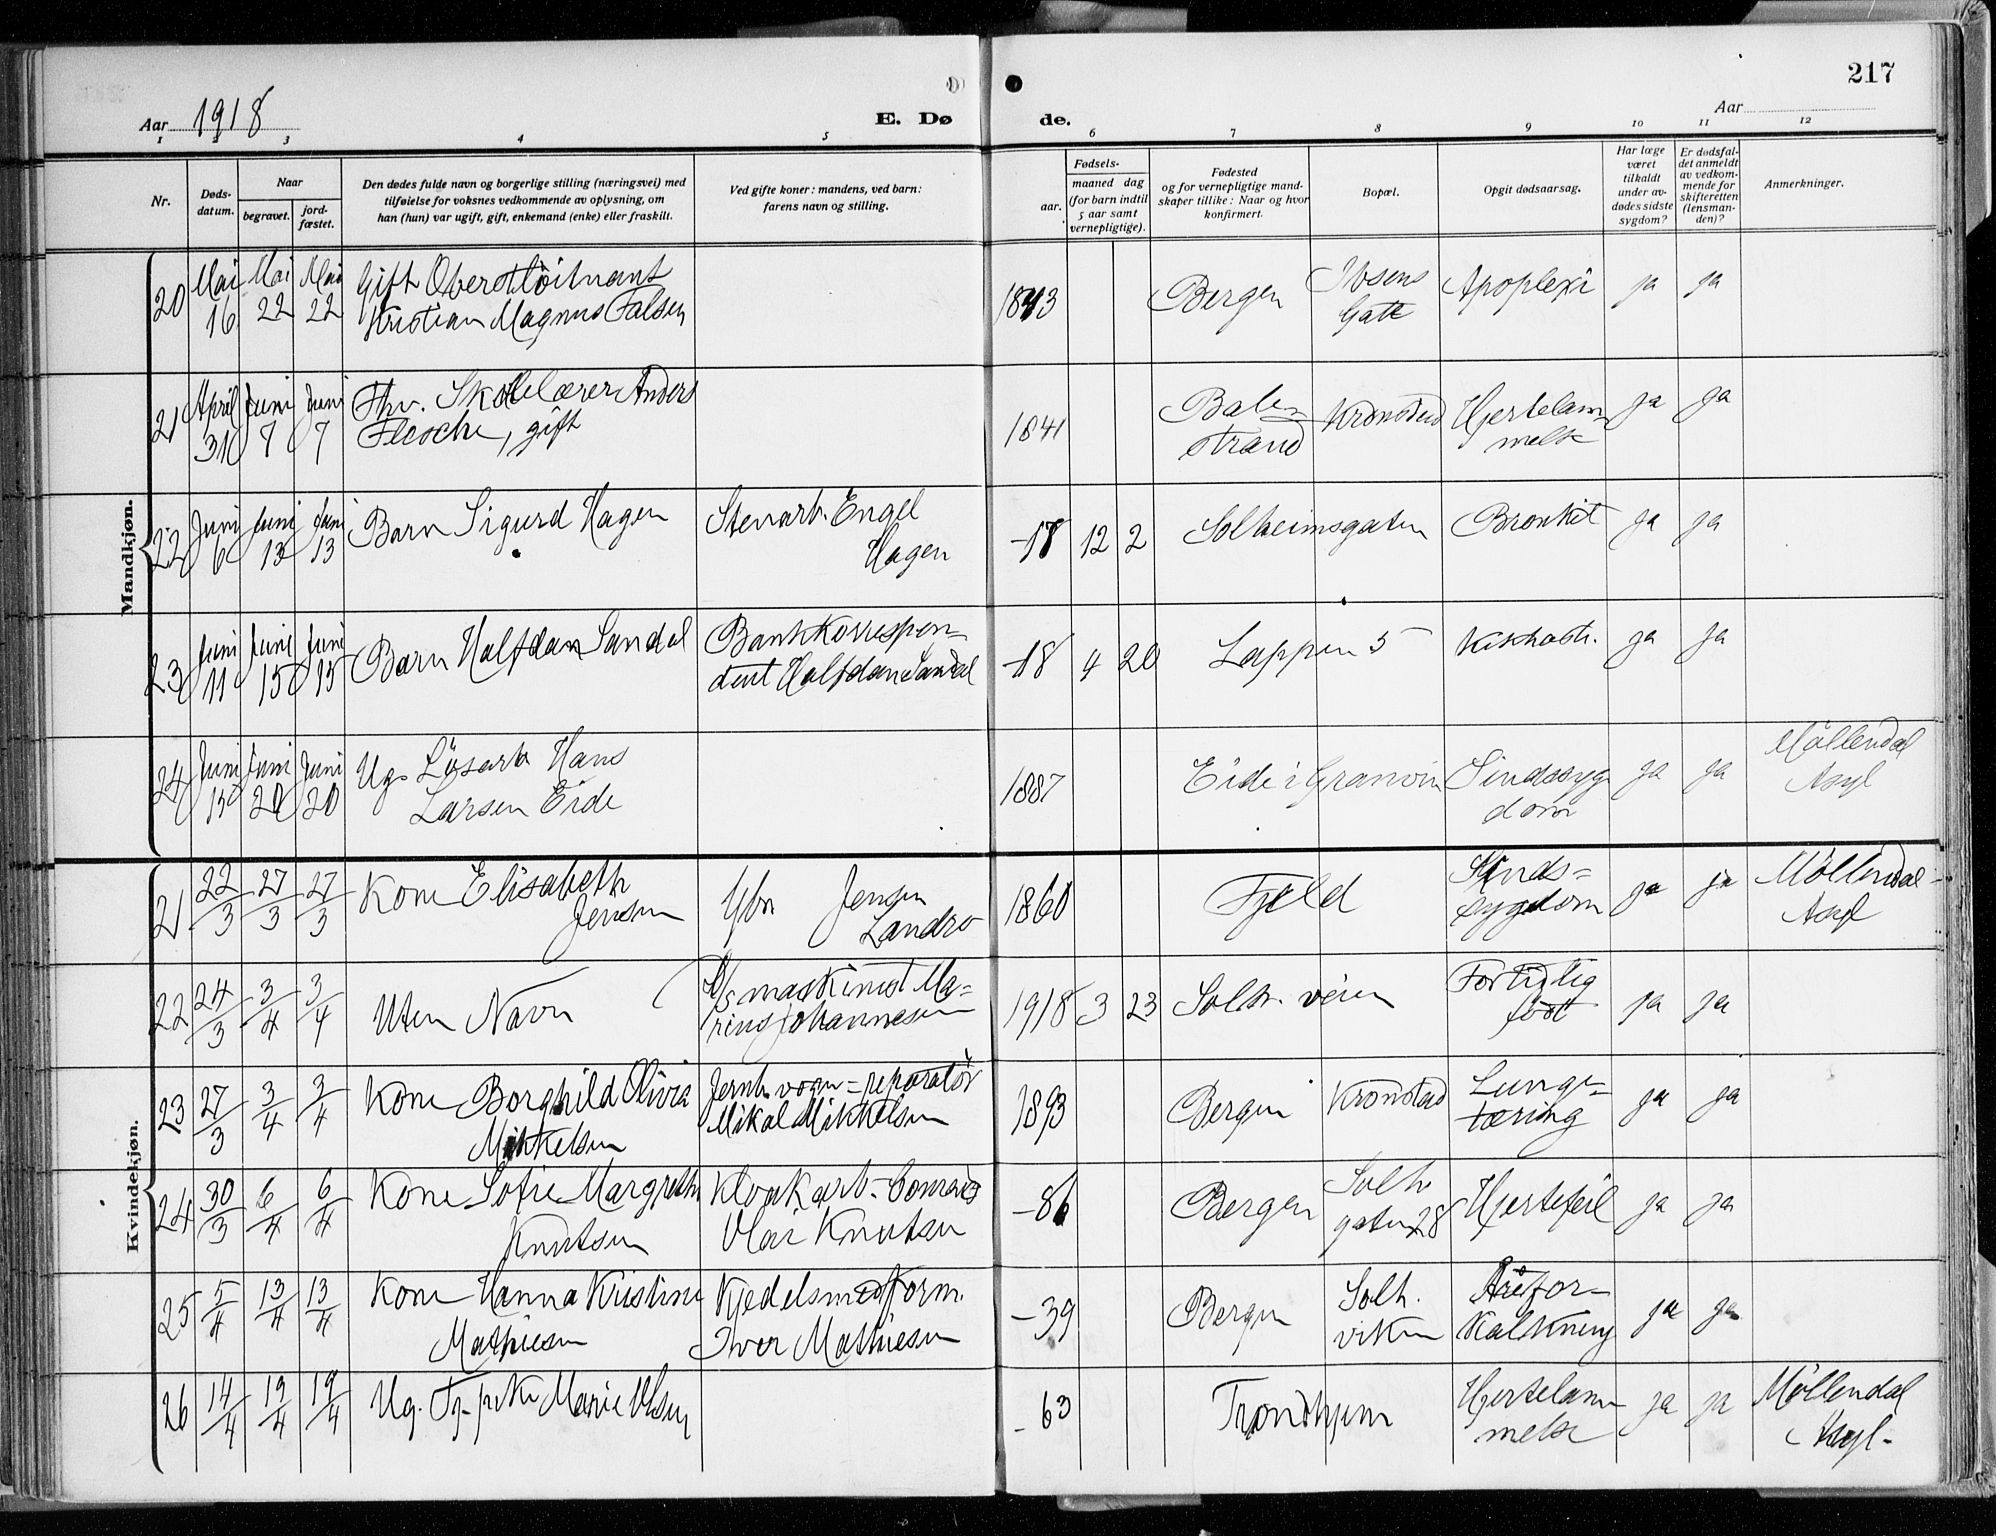 217
Aar 1918
E. Dø
de.
Aar
1 2 3 4 5 6 7 8 9 10 11 12
Nr.
Døds-
datum.
Naar
begravet.
jord-
fæstet.
Den dødes fulde navn og borgerlige stilling (næringsvei) med
tilføielse for voksnes vedkommende av oplysning, om
han (hun) var ugift, gift, enkemand (enke) eller fraskilt.
Ved gifte koner: mandens, ved barn:
farens navn og stilling.
Fødsels-
aar.
maaned dag
(for barn indtil
5 aar samt
vernepligtige).
Fødested
og for vernepligtige mand-
skaper tillike: Naar og hvor
konfirmert.
Bopæl.
Opgit dødsaarsag.
Har læge
været
tilkaldt
under av-
dødes sidste
sygdom?
Er dødsfal-
det anmeldt
av vedkom-
mende for
skifteretten
(lensman-
den)?
Anmerkninger.
Mandkjøn.
20 Mai Mai Mai Gift Oberstløitnant 1843 Bergen Ibsens Apoplexi ja ja
16 22 22 Kristian Magnus Falsen Gate
21 April Juni Juni Fhv. Skolelærer Anders 1841 Balen Kronstad Hjertelam ja ja
31 7 7 Flesche, gift strand melse
22 Juni Juni Juni Barn Sigurd Hagen Stenarb. Engel -18 12 2 Solheimsgaten Bronkit ja ja
6 13 13 Hagen
23 Juni Juni Juni Barn Halfdan Sandal Bankkorrespon- -18 4 20 Lappen 5 Kikhoste. ja ja
11 15 15 dent Halfdan Sandal
24 Juni Juni Juni Ug. Løsarb Hans 1887 Eide i Granvin Sindssyg ja ja Møllendal
15 20 20 Larsen Eide dom Asyl
Kvindekjøn.
21 22/3 27/3 27/3 Kone Elisabeth Jensen 1860 Fjeld Sinds= ja ja Møllendal
Jensen Landro sygdom Asyl
22 24/3 3/4 3/4 Uten Navn D/s maskinist Ma= 1918 3 23 Solh. veien Fortidlig ja ja
rius Johannesen født
23 27/3 3/4 3/4 Kone Borghild Olivia Jernb. vogn=reparatør 1893 Bergen Kronstad Lunge= ja ja
Mikkelsen Mikal Mikkelsen tæring
24 30/3 6/4 6/4 Kone Sofie Margrethe Kloakarb. Conrad -86 Bergen Solh Hjertefeil ja ja
Knutsen Olai Knutsen gaten 28
25 5/4 13/4 13/4 Kone Hanna Kristine Kjedelsmedform. -39 Bergen Solh. Åréfor- ja ja
Mathiesen Iver Mathiesen viken kalkning
26 14/4 19/4 19/4 Ug. Marie Olsen -63 Trondhjem Hjertelam ja ja Møllendal
melse Asyl-